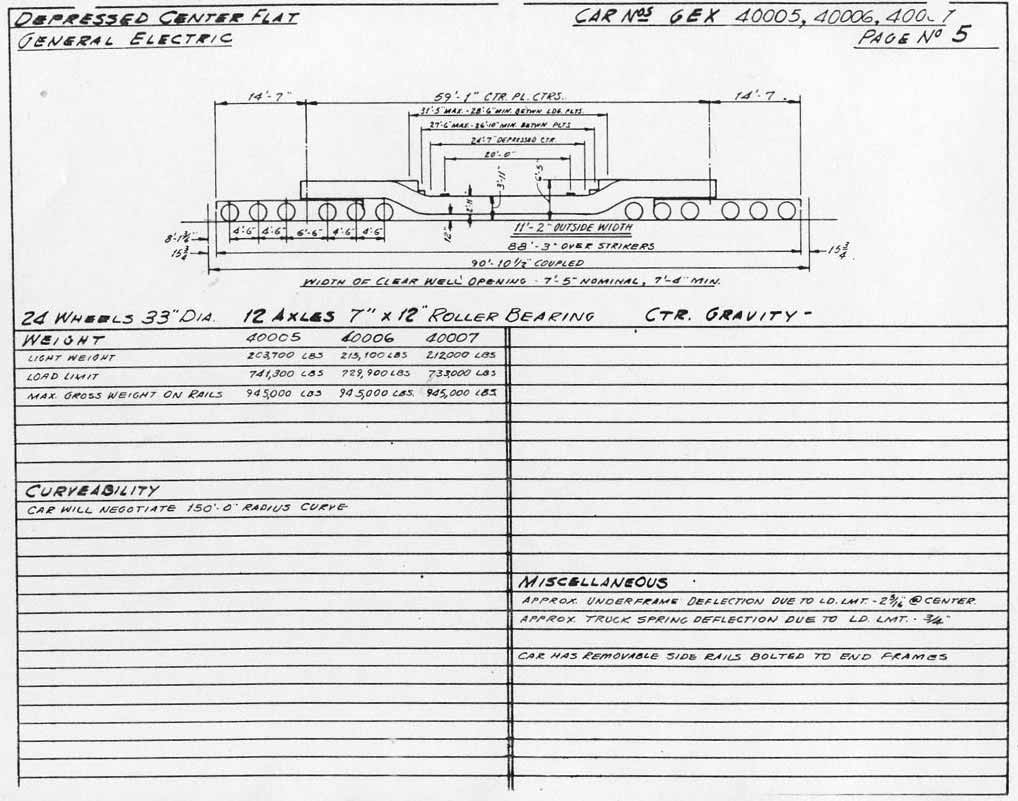 DEPRESSED CENTER FLAT
GENERAL ELECTRIC
CAR NOS GEX 40005, 40006, 400 7
PAGE NO 5
14'-7"
59'-1" CTR. PL. CTRS.
14'-7
31'-5" MAX. - 28'-6" MIN. BETWN LDG. PLTS.
27'-6" MAX. - 26'-10" MIN. BETWN PLTS
24'-7" DEPRESSED CTR.
20'-0"
3'-11"
6'-5"
2'-11"
12"
4'-6"
4'-6"
6'-6"
4'-6"
4'-6"
11'-2" OUTSIDE WIDTH
15 3/4
88'-3" OVER STRIKERS
15 3/4"
90'-10 1/2" COUPLED
WIDTH OF CLEAR WELL OPENING - 7'-5" NOMINAL, 7'-4" MIN.
24 WHEELS 33" DIA. 12 AXLES 7" X 12" ROLLER BEARING CTR. GRAVITY -
WEIGHT 40005 40006 40007
LIGHT WEIGHT 203,700 LBS 215,100 LBS 212000 LBS
LOAD LIMIT 741,300 LBS 729,900 LBS 733000 LBS
MAX. GROSS WEIGHT ON RAILS 945,000 LBS 945,000 LBS. 945,000 LBS
CURVEABILITY
CAR WILL NEGOTIATE 150'-0" RADIUS CURVE
MISCELLANEOUS
APPROX. UNDERFRAME DEFLECTION DUE TO LD. LMT. - 2 5/16" @ CENTER.
APPROX. TRUCK SPRING DEFLECTION DUE TO LD. LMT. - 3/4"
CAR HAS REMOVABLE SIDE RAILS BOLTED TO END FRAMES